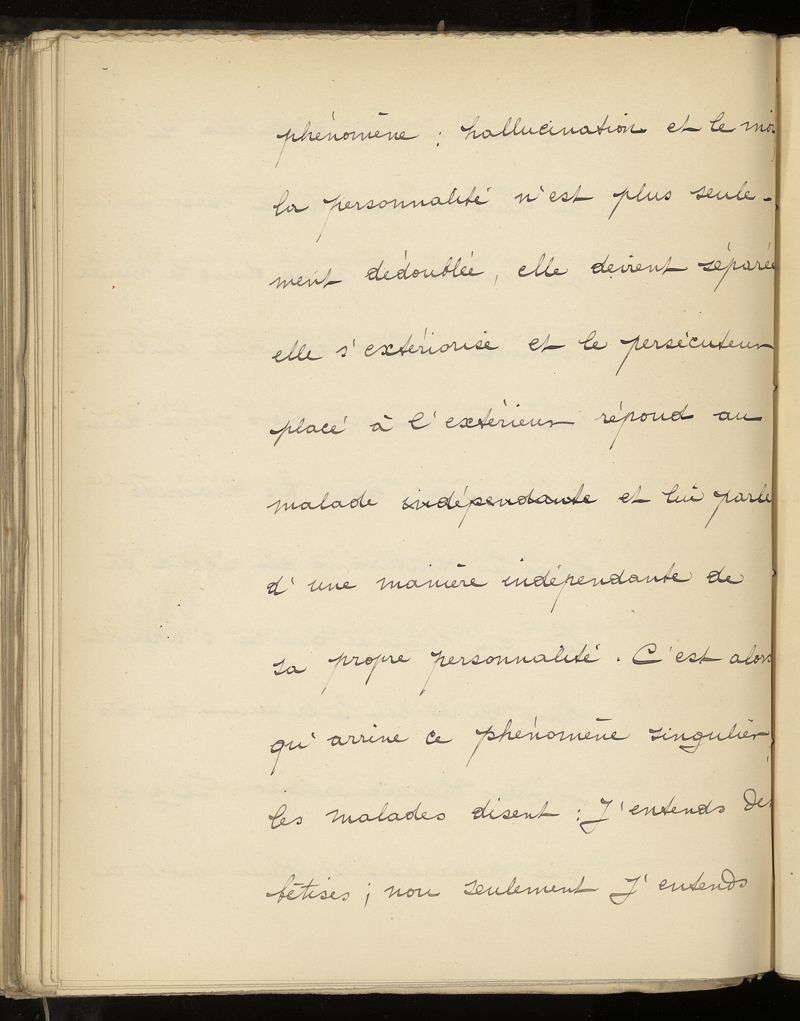 phénomène ; hallucination et le moi
la personnalité n'est plus seule-
ment dédoublée, elle devient séparée
elle s'extériorise et le persécuteur
placé à l'extérieur répond au
malade indépendante et lui parle
d'une manière indépendante de
sa propre personnalité. C'est alors
qu'arrive ce phénomène singulier,
les malades disent : J'entends des
bêtises ; non seulement J'entends